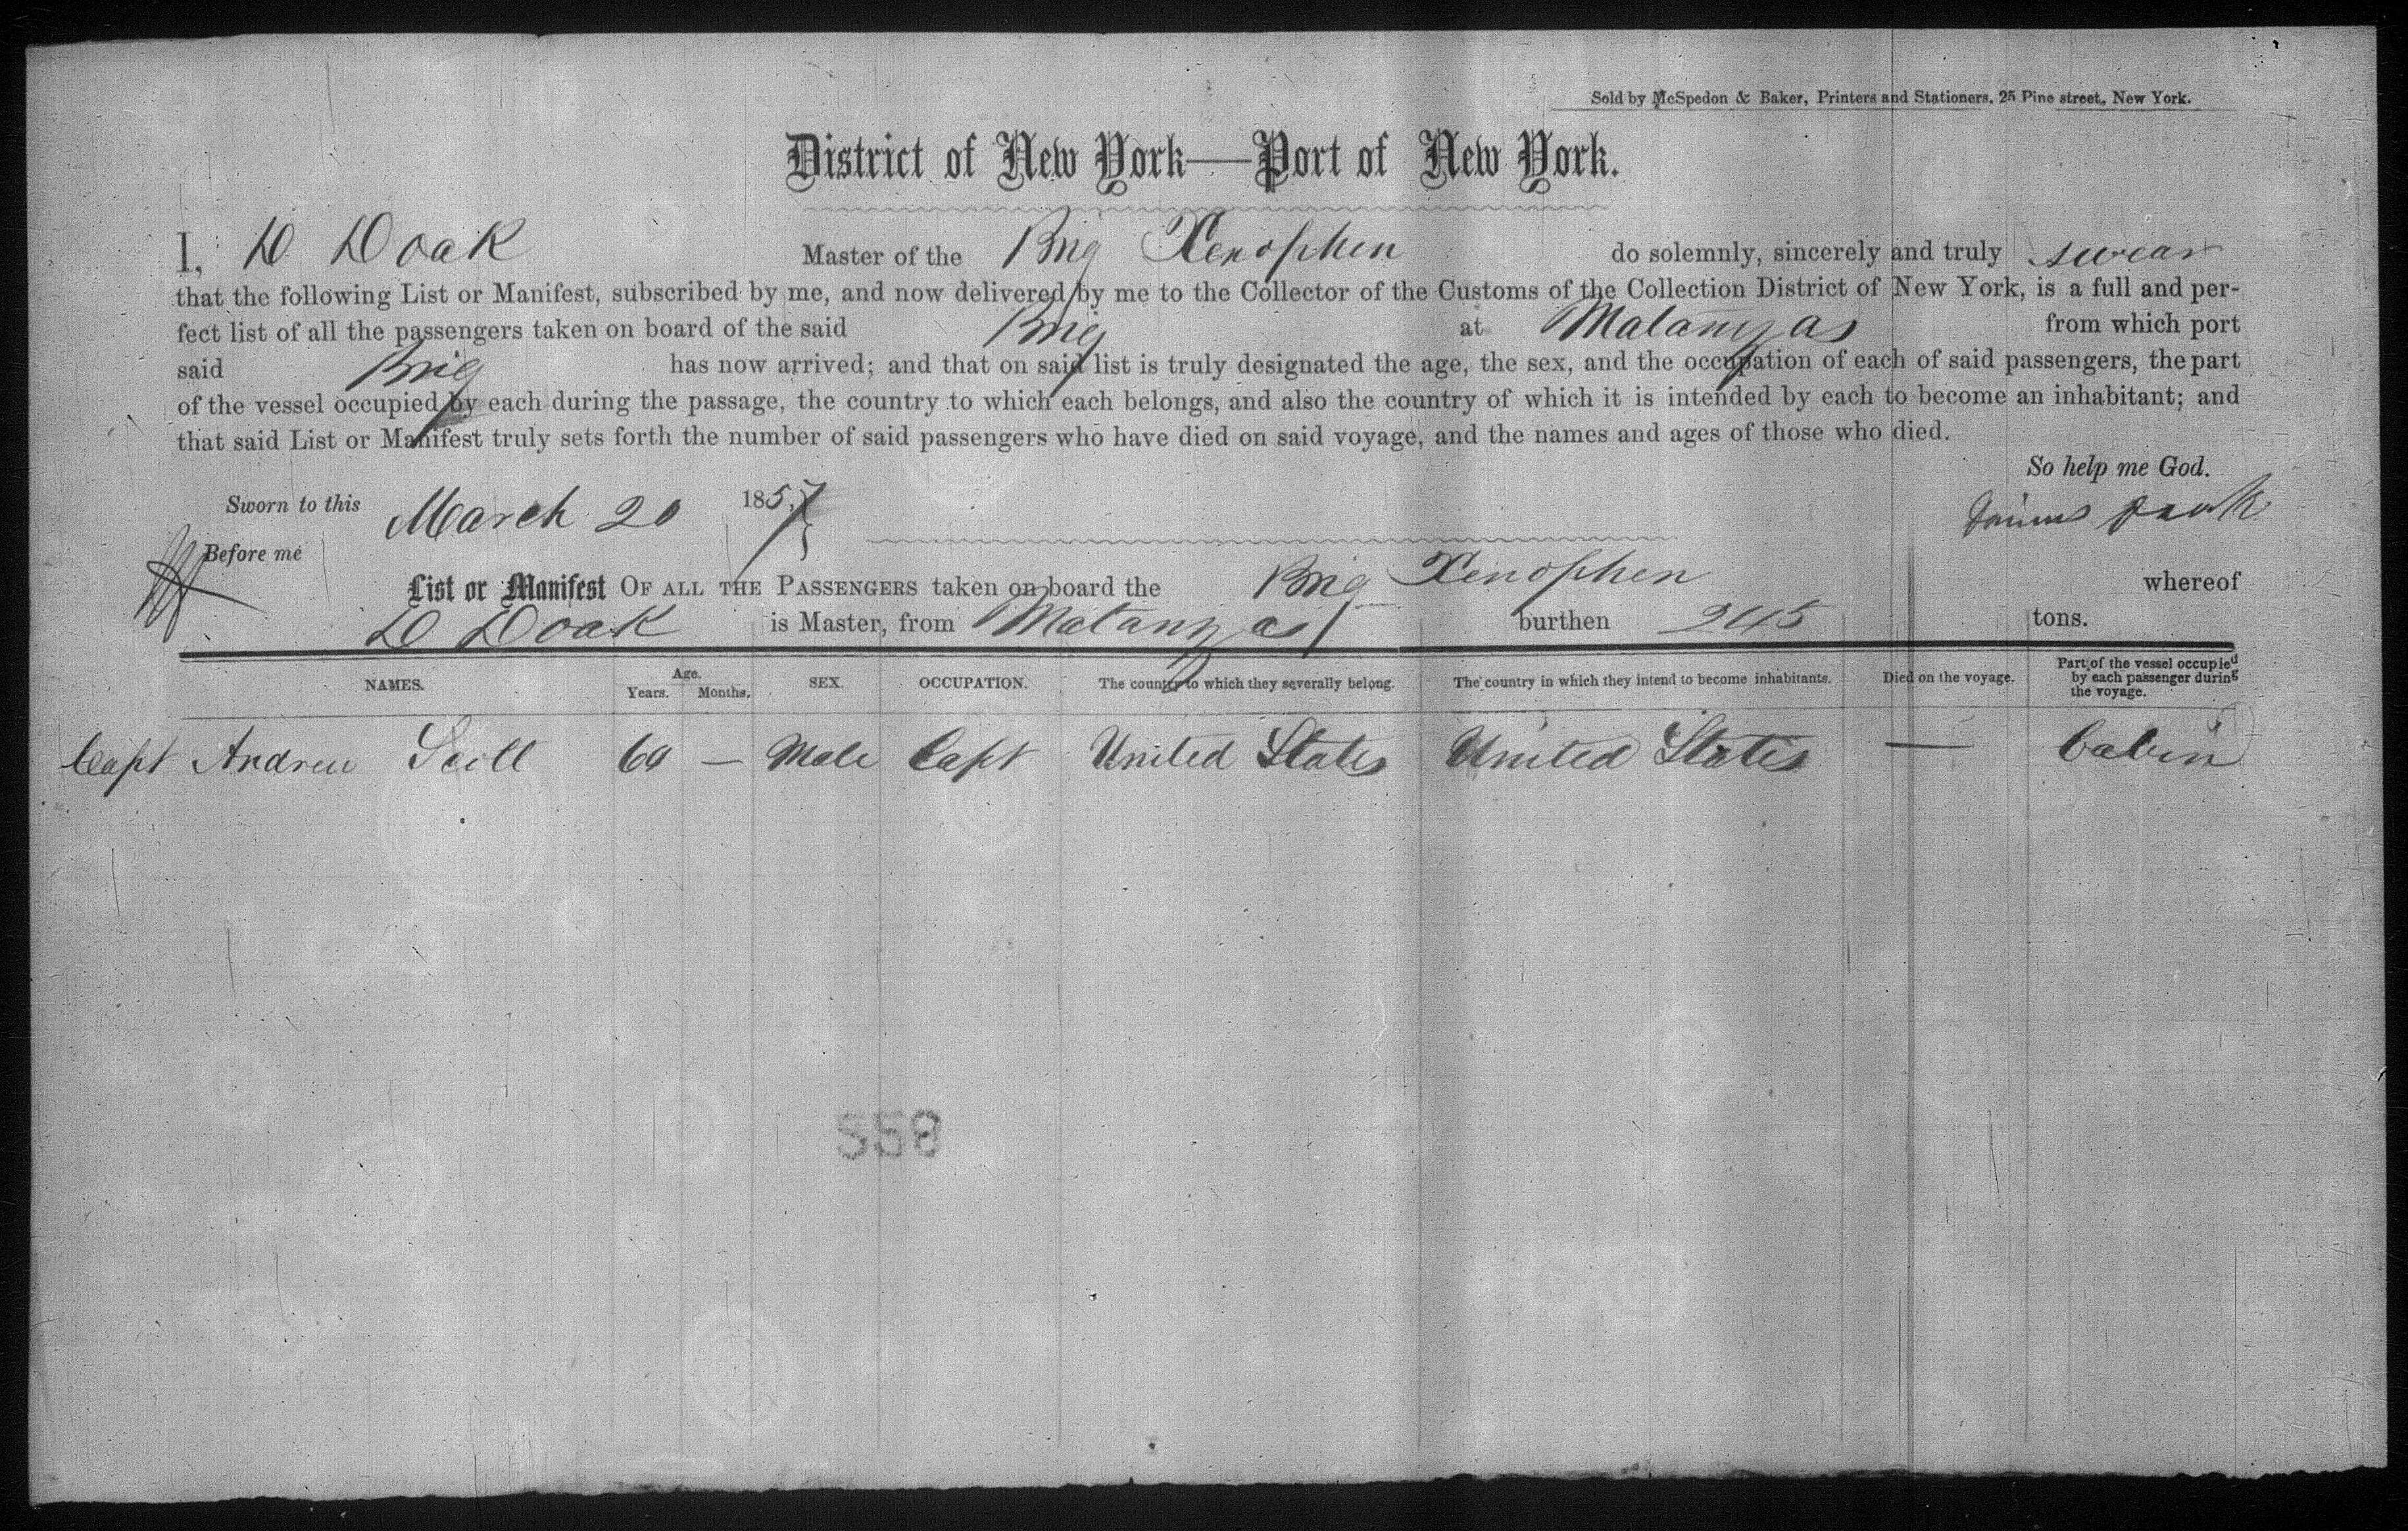 Sold by McSpedon & Baker, Printers and Stationers, 25 Pine street, New York.
District of New York—Port of New York.
I, D Doak Master of the Brig Xenophen do solemnly, sincerely and truly swear
that the following List or Manifest, subscribed by me, and now delivered by me to the Collector of the Customs of the Collection District of New York, is a full and per-
fect list of all the passengers taken on board of the said Brig at Matanzas from which port
said Brig has now arrived; and that on said list is truly designated the age, the sex, and the occupation of each of said passengers, the part
of the vessel occupied by each during the passage, the country to which each belongs, and also the country of which it is intended by each to become an inhabitant; and
that said List or Manifest truly sets forth the number of said passengers who have died on said voyage, and the names and ages of those who died.
So help me God.
Sworn to this March 20 1857
Before me
List or Manifest OF ALL THE PASSENGERS taken on board the Brig Xenophen whereof
D Doak is Master, from Matanzas burthen 245 tons.
NAMES. Age. Years. Months. SEX. OCCUPATION. The country to which they severally belong. The country in which they intend to become inhabitants. Died on the voyage. Part of the vessel occupied by each passenger during the voyage.
Capt Andrew Scott 60 — Male Capt United States United States — Cabin